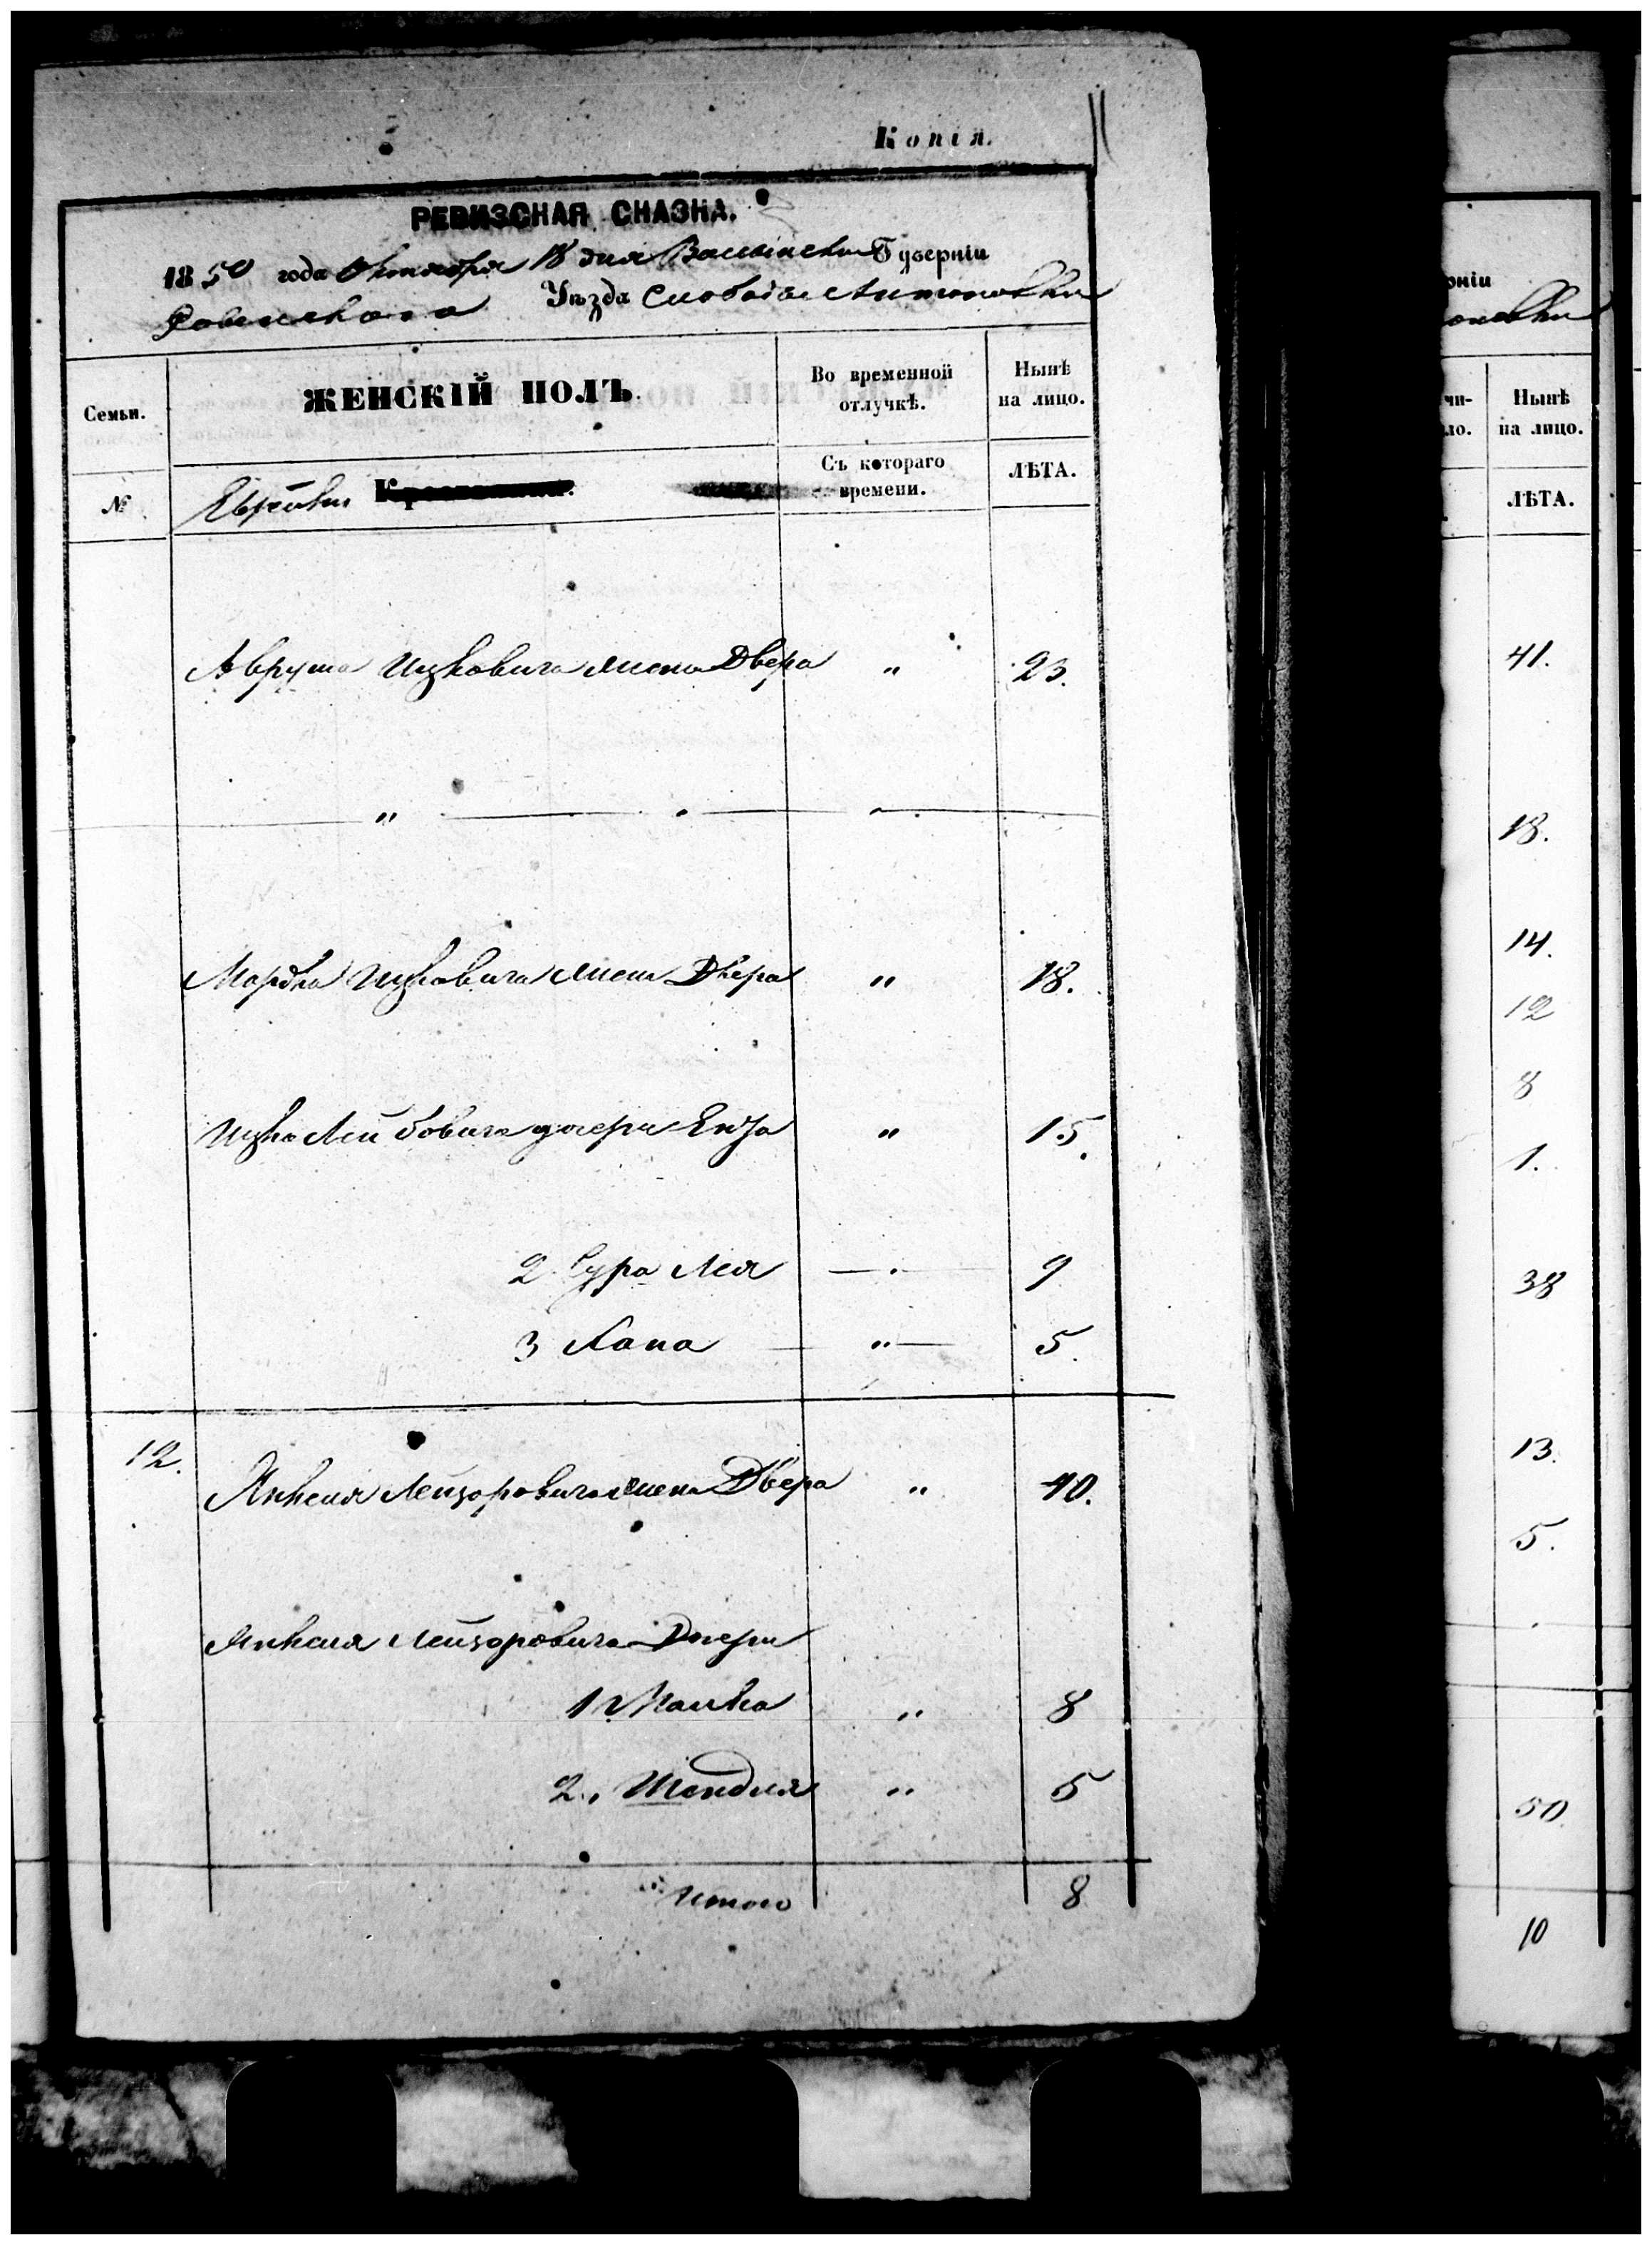 Копія.
РЕВИЗСКАЯ СКАЗКА.
1850 года Октября 18 дня Волынской Губерніи
Ровенскаго Уѣзда Слободы Антоновки
Семьи. ЖЕНСКІЙ ПОЛЪ. Во временной отлучкѣ. Нынѣ на лицо.
№ Еврейки Съ котораго времени. ЛѢТА.
Аврума Ицковича жена Двера " 23.
" — . — . —
Мордка Ицковича жена Двера " 18.
Ицка Лейбовича дочери Ента " 15.
2 Сура Лея — . — 9
3 Хана — " — 5.
12. Янкеля Лейзоровича жена Двера " 40.
Янкеля Лейзоровича Дочери
1 Малка " 8
2, Шендля " 5
Итого 8
рніи
оновки
чи-
ло. Нынѣ на лицо.
ЛѢТА.
41.
18.
14.
12
8
1.
38
13.
5.
50.
10